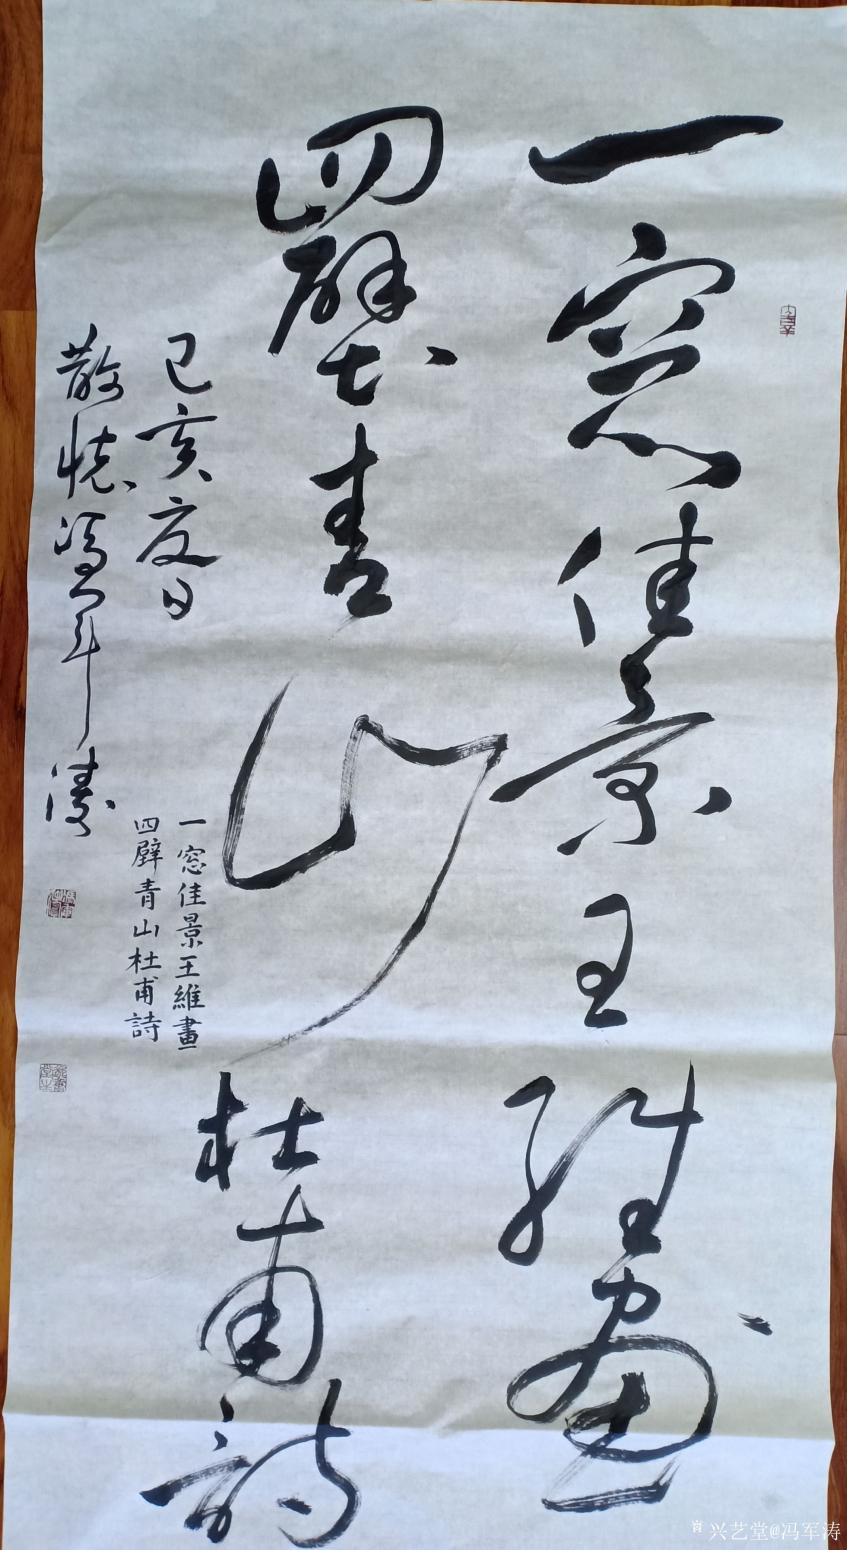 一窓佳景王維畫
四壁青山杜甫詩
己亥夏日
散懷馮軍濤
一窓佳景王維畫
四壁青山杜甫詩
兴艺堂@冯军涛